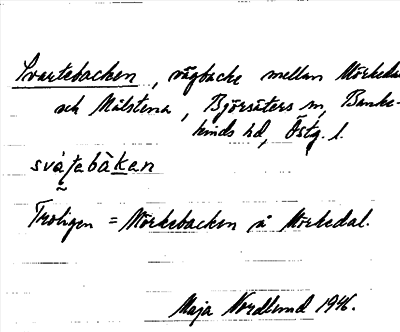 Svartebacken, vägbacke mellan Mörkedal
och Målstena, Björsäters sn, Banke-
kinds hd, Östg. l.
svátabàkan
Troligen = Mörkebacken å Mörkedal.
Maja Nordlund 1946.